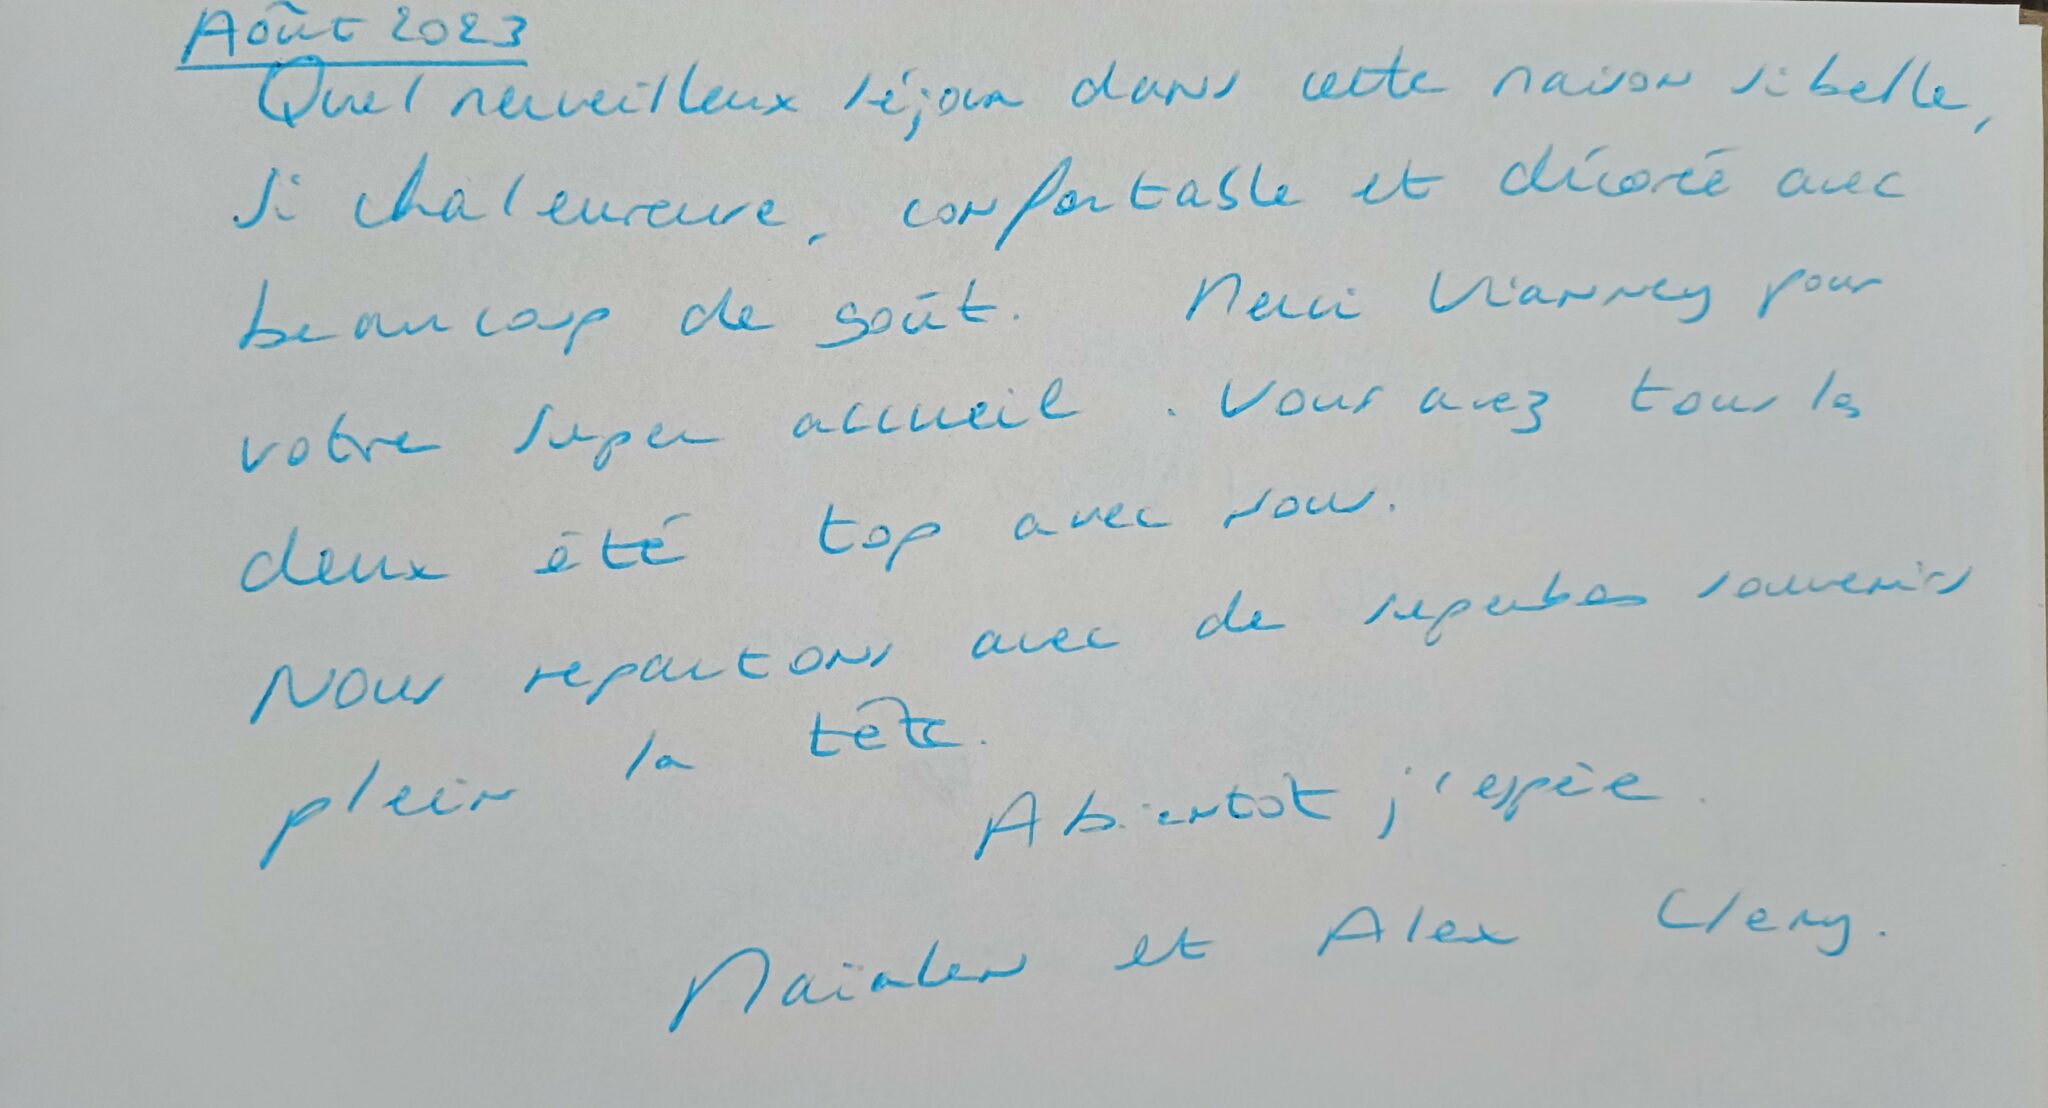 Août 2023
Quel merveilleux séjour dans cette maison si belle,
si chaleureuse, confortable et décoré avec
beaucoup de goût. Merci Vianney pour
votre super accueil. Vous avez tous les
deux été top avec nous.
Nous repartons avec de superbes souvenirs
plein la tête.
A bientôt j'espère.
et Alex Clery.